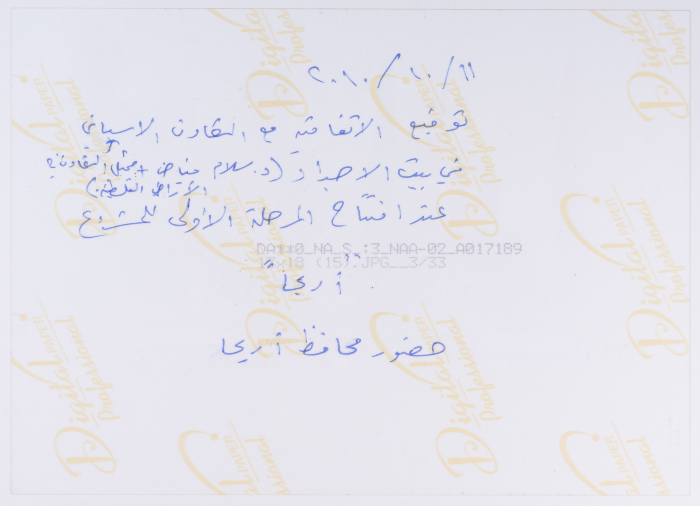 ٢٠١٠/١٠/١١
توقيع الاتفاقية مع التعاون الاسباني
في بيت الاجداد (د. سلام فياض + ممثل التعاون في
الأراضي الفلسطينية)
عند افتتاح المرحلة الأولى للمشروع
DA1±0_NA_S_:3_NAA-02_A017189
13x18 (15).JPG__3/33
"أريحا"
حضور محافظ أريحا
Digital
Professional